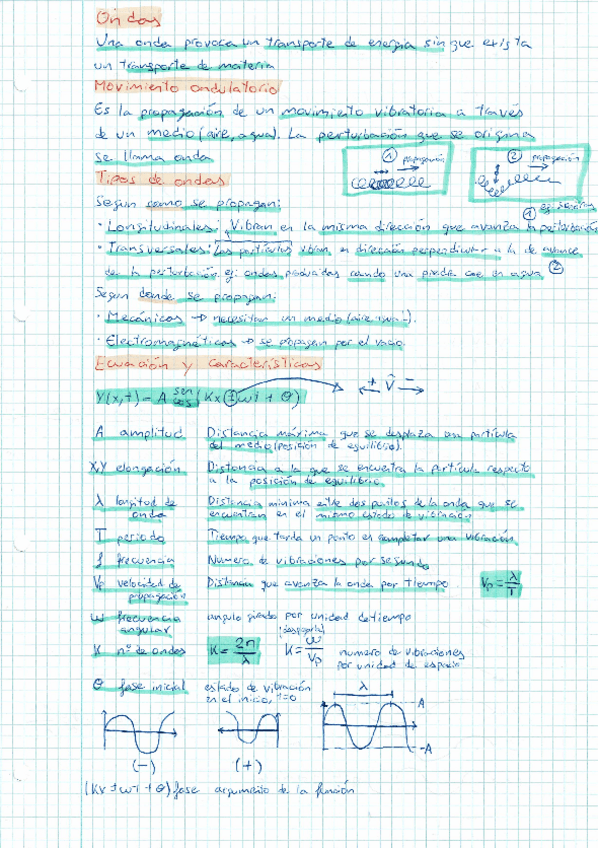 Ondas
Una onda provoca un transporte de energia sin que exista
un transporte de materia
Movimiento ondulatorio
Es la propagación de un movimiento vibratorio a través
de un medio (aire, agua). La perturbación que se origina
se llama onda
① propagación
② propagación
Tipos de ondas
Segun como se propagan:
① ej: sísmicas
· Longitudinales: Vibran en la misma dirección que avanza la perturbación
· Transversales: Las particulas vibran en dirección perpendicular a la de avance
de la perturbación. ej: ondas producidas cuando una piedra cae en agua ②
Segun donde se propagan:
· Mecánicas → necesitan un medio (aire, agua).
· Electromagnéticas → se propagan por el vacio
Ecuación y características
Y(x,t) = A sen cos (Kx ± wt + θ)
← + V̂ − →
A amplitud Distancia máxima que se desplaza una partícula
del medio (posición de equilibrio).
X,Y elongación Distancia a la que se encuentra la partícula respecto
a la posición de equilibrio
λ longitud de onda Distancia minima entre dos puntos de la onda que se
encuentran en el mismo estado de vibración
T periodo Tiempo que tarda un punto en completar una vibración
f frecuencia Numero de vibraciones por segundo
Vp velocidad de propagación Distancia que avanza la onda por tiempo Vp = λ/T
w frecuencia angular angulo girado por unidad de tiempo
K nº de ondas K = 2π/λ K = w/Vp numero de vibraciones
por unidad de espacio
θ fase inicial estado de vibración
en el inicio, t=0
λ
A
-A
(-) (+)
(Kx ± wt + θ) fase argumento de la función